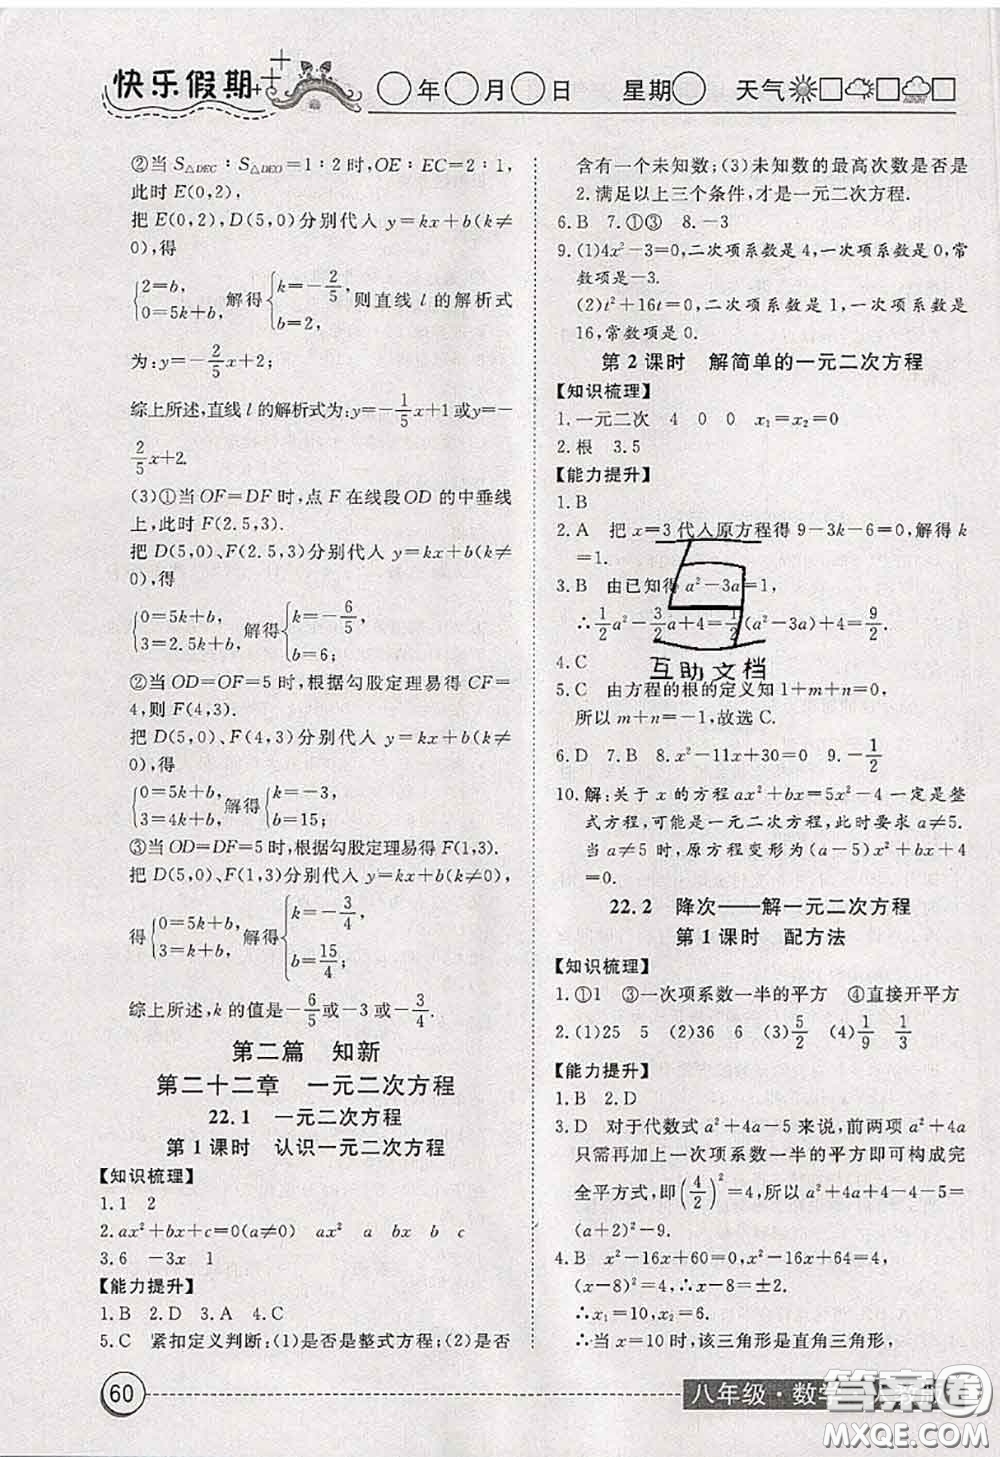 快乐假期
年 月 日 星期 天气
②当 S△DEC∶S△DEO=1∶2时,OE∶EC=2∶1,
此时 E(0,2),
把 E(0,2),D(5,0)分别代入 y=kx+b(k≠
0),得
{2=b, 0=5k+b, 解得{k=-2/5, b=2, 则直线 l 的解析式
为:y=-2/5x+2;
综上所述,直线 l 的解析式为:y=-1/5x+1或y=-
2/5x+2.
(3)①当 OF=DF 时,点 F 在线段 OD 的中垂线
上,此时 F(2.5,3).
把 D(5,0)、F(2.5,3)分别代入 y=kx+b(k≠
0),得
{0=5k+b, 3=2.5k+b, 解得{k=-6/5, b=6;
②当 OD=OF=5 时,根据勾股定理易得 CF=
4,则 F(4,3).
把 D(5,0)、F(4,3)分别代入 y=kx+b(k≠
0),得
{0=5k+b, 3=4k+b, 解得{k=-3, b=15;
③当 OD=DF=5 时,根据勾股定理易得 F(1,3).
把 D(5,0)、F(1,3)分别代入 y=kx+b(k≠0),
得{0=5k+b, 3=k+b, 解得{k=-3/4, b=15/4;
综上所述,k 的值是-6/5或-3或-3/4.
第二篇 知新
第二十二章 一元二次方程
22.1 一元二次方程
第1课时 认识一元二次方程
【知识梳理】
1.1 2
2.ax²+bx+c=0(a≠0) ax² a bx b c
3.6 -3x 1
【能力提升】
1.B 2.D 3.A 4.C
5.C 紧扣定义判断:(1)是否是整式方程;(2)是否
含有一个未知数;(3)未知数的最高次数是否是
2.满足以上三个条件,才是一元二次方程.
6.B 7.①③ 8.-3
9.(1)4x²-3=0,二次项系数是4,一次项系数是0,常
数项是-3.
(2)t²+16t=0,二次项系数是1,一次项系数是
16,常数项是0.
第2课时 解简单的一元二次方程
【知识梳理】
1.一元二次 4 0 0 x₁=x₂=0
2.根 3.5
【能力提升】
1.B
2.A 把 x=3 代入原方程得 9-3k-6=0,解得 k
=1.
3.B 由已知得 a²-3a=1,
∴1/2a²-3/2a+4=1/2(a²-3a)+4=9/2.
4.C
互助文档
5.C 由方程的根的定义知 1+m+n=0,
所以 m+n=-1,故选 C.
6.D 7.B 8.x²-11x+30=0 9.-1/2
10.解:关于 x 的方程 ax²+bx=5x²-4 一定是整
式方程,可能是一元二次方程,此时要求 a≠5.
当 a≠5 时,原方程变形为(a-5)x²+bx+4
=0.
22.2 降次——解一元二次方程
第1课时 配方法
【知识梳理】
1.①1 ③一次项系数一半的平方 ④直接开平方
2.(1)25 5 (2)36 6 (3)5/2 (4)1/9 1/3
【能力提升】
1.B 2.D
3.D 对于代数式 a²+4a-5 来说,前两项 a²+4a
只需再加上一次项系数一半的平方即可构成完
全平方式,即(4/2)²=4,所以 a²+4a+4-4-5=
(a+2)²-9.
4.B x²-16x+60=0,x²-16x+64=4,
(x-8)²=4,∴x-8=±2.
∴x₁=10,x₂=6.
∴当 x=10 时,该三角形是直角三角形,
60
八年级·数学
答案卷
MXQE.COM